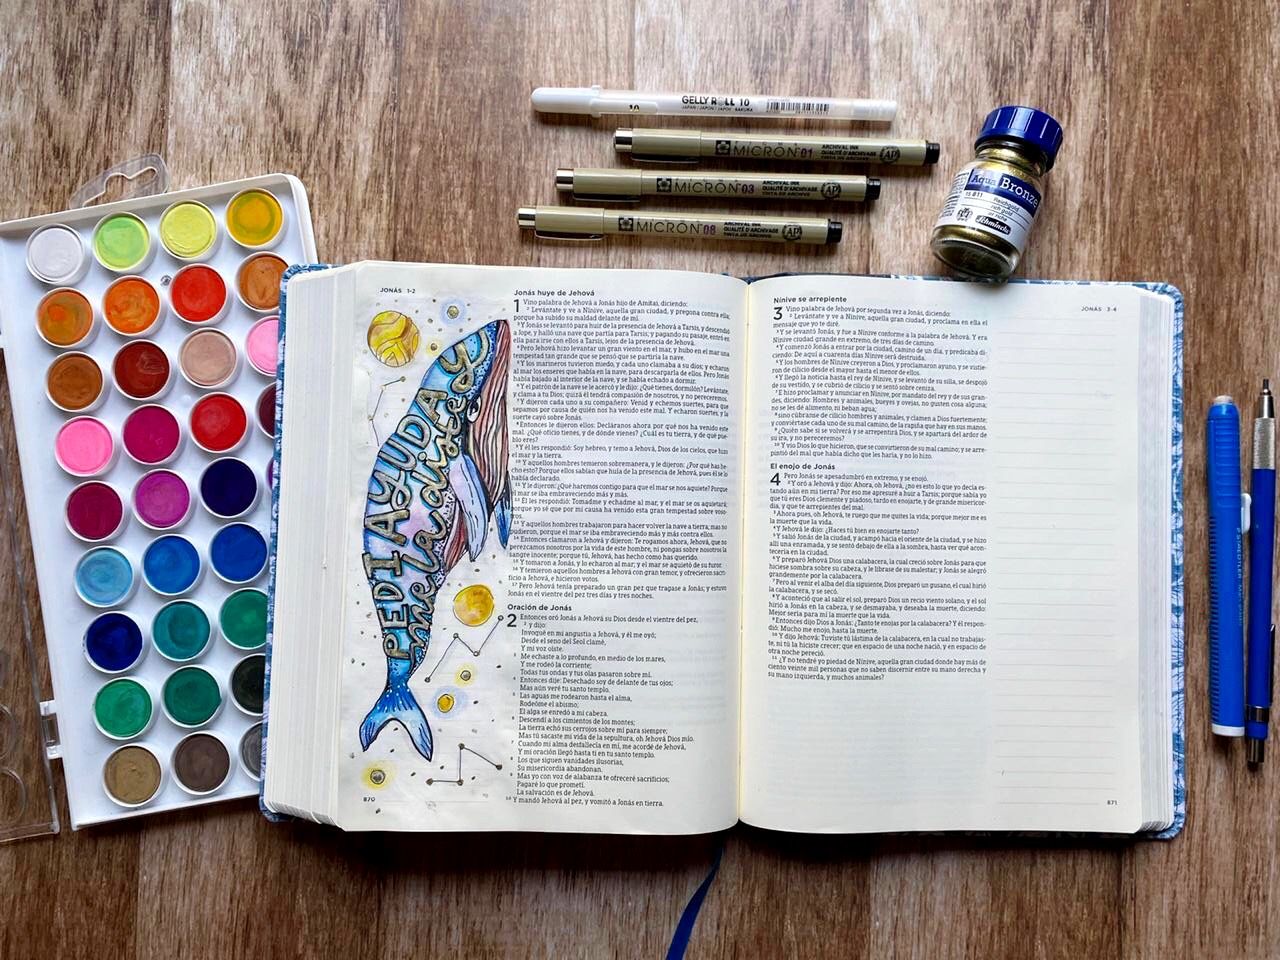 GELLY ROLL 10
MICRON 01
ARCHIVAL INK
QUALITÉ D'ARCHIVAGE
TINTA DE ARCHIVE
MICRON 03
ARCHIVAL INK
QUALITÉ D'ARCHIVAGE
TINTA DE ARCHIVE
MICRON 08
ARCHIVAL INK
QUALITÉ D'ARCHIVAGE
TINTA DE ARCHIVE
Aqua Bronze
Reichgold
rich gold
or riche
Schmincke
STAEDTLER
JONÁS 1-2
PEDI AYUDA y
me la diste
Jonás huye de Jehová
1 Vino palabra de Jehová a Jonás hijo de Amitai, diciendo:
2 Levántate y ve a Nínive, aquella gran ciudad, y pregona contra ella;
porque ha subido su maldad delante de mí.
3 Y Jonás se levantó para huir de la presencia de Jehová a Tarsis, y descendió
a Jope, y halló una nave que partía para Tarsis; y pagando su pasaje, entró en
ella para irse con ellos a Tarsis, lejos de la presencia de Jehová.
4 Pero Jehová hizo levantar un gran viento en el mar, y hubo en el mar una
tempestad tan grande que se pensó que se partiría la nave.
5 Y los marineros tuvieron miedo, y cada uno clamaba a su dios; y echaron
al mar los enseres que había en la nave, para descargarla de ellos. Pero Jonás
había bajado al interior de la nave, y se había echado a dormir.
6 Y el patrón de la nave se le acercó y le dijo: ¿Qué tienes, dormilón? Levántate,
y clama a tu Dios; quizá él tendrá compasión de nosotros, y no pereceremos.
7 Y dijeron cada uno a su compañero: Venid y echemos suertes, para que
sepamos por causa de quién nos ha venido este mal. Y echaron suertes, y la
suerte cayó sobre Jonás.
8 Entonces le dijeron ellos: Decláranos ahora por qué nos ha venido este
mal. ¿Qué oficio tienes, y de dónde vienes? ¿Cuál es tu tierra, y de qué pue-
blo eres?
9 Y él les respondió: Soy hebreo, y temo a Jehová, Dios de los cielos, que hizo
el mar y la tierra.
10 Y aquellos hombres temieron sobremanera, y le dijeron: ¿Por qué has he-
cho esto? Porque ellos sabían que huía de la presencia de Jehová, pues él se lo
había declarado.
11 Y le dijeron: ¿Qué haremos contigo para que el mar se nos aquiete? Porque
el mar se iba embraveciendo más y más.
12 Él les respondió: Tomadme y echadme al mar, y el mar se os aquietará;
porque yo sé que por mi causa ha venido esta gran tempestad sobre voso-
tros.
13 Y aquellos hombres trabajaron para hacer volver la nave a tierra; mas no
pudieron, porque el mar se iba embraveciendo más y más contra ellos.
14 Entonces clamaron a Jehová y dijeron: Te rogamos ahora, Jehová, que no
perezcamos nosotros por la vida de este hombre, ni pongas sobre nosotros la
sangre inocente; porque tú, Jehová, has hecho como has querido.
15 Y tomaron a Jonás, y lo echaron al mar; y el mar se aquietó de su furor.
16 Y temieron aquellos hombres a Jehová con gran temor, y ofrecieron sacri-
ficio a Jehová, e hicieron votos.
17 Pero Jehová tenía preparado un gran pez que tragase a Jonás; y estuvo
Jonás en el vientre del pez tres días y tres noches.
Oración de Jonás
2 Entonces oró Jonás a Jehová su Dios desde el vientre del pez,
2 y dijo:
Invoqué en mi angustia a Jehová, y él me oyó;
Desde el seno del Seol clamé,
Y mi voz oíste.
3 Me echaste a lo profundo, en medio de los mares,
Y me rodeó la corriente;
Todas tus ondas y tus olas pasaron sobre mí.
4 Entonces dije: Desechado soy de delante de tus ojos;
Mas aún veré tu santo templo.
5 Las aguas me rodearon hasta el alma,
Rodeóme el abismo;
El alga se enredó a mi cabeza.
6 Descendí a los cimientos de los montes;
La tierra echó sus cerrojos sobre mí para siempre;
Mas tú sacaste mi vida de la sepultura, oh Jehová Dios mío.
7 Cuando mi alma desfallecía en mí, me acordé de Jehová,
Y mi oración llegó hasta ti en tu santo templo.
8 Los que siguen vanidades ilusorias,
Su misericordia abandonan.
9 Mas yo con voz de alabanza te ofreceré sacrificios;
Pagaré lo que prometí.
La salvación es de Jehová.
10 Y mandó Jehová al pez, y vomitó a Jonás en tierra.
870
JONÁS 3-4
Nínive se arrepiente
3 Vino palabra de Jehová por segunda vez a Jonás, diciendo:
2 Levántate y ve a Nínive, aquella gran ciudad, y proclama en ella el
mensaje que yo te diré.
3 Y se levantó Jonás, y fue a Nínive conforme a la palabra de Jehová. Y era
Nínive ciudad grande en extremo, de tres días de camino.
4 Y comenzó Jonás a entrar por la ciudad, camino de un día, y predicaba di-
ciendo: De aquí a cuarenta días Nínive será destruida.
5 Y los hombres de Nínive creyeron a Dios, y proclamaron ayuno, y se vistie-
ron de cilicio desde el mayor hasta el menor de ellos.
6 Y llegó la noticia hasta el rey de Nínive, y se levantó de su silla, se despojó
de su vestido, y se cubrió de cilicio y se sentó sobre ceniza.
7 E hizo proclamar y anunciar en Nínive, por mandato del rey y de sus gran-
des, diciendo: Hombres y animales, bueyes y ovejas, no gusten cosa alguna;
no se les dé alimento, ni beban agua;
8 sino cúbranse de cilicio hombres y animales, y clamen a Dios fuertemente;
y conviértase cada uno de su mal camino, de la rapiña que hay en sus manos.
9 ¿Quién sabe si se volverá y se arrepentirá Dios, y se apartará del ardor de
su ira, y no pereceremos?
10 Y vio Dios lo que hicieron, que se convirtieron de su mal camino; y se arre-
pintió del mal que había dicho que les haría, y no lo hizo.
El enojo de Jonás
4 Pero Jonás se apesadumbró en extremo, y se enojó.
2 Y oró a Jehová y dijo: Ahora, oh Jehová, ¿no es esto lo que yo decía es-
tando aún en mi tierra? Por eso me apresuré a huir a Tarsis; porque sabía yo
que tú eres Dios clemente y piadoso, tardo en enojarte, y de grande misericor-
dia, y que te arrepientes del mal.
3 Ahora pues, oh Jehová, te ruego que me quites la vida; porque mejor me es
la muerte que la vida.
4 Y Jehová le dijo: ¿Haces tú bien en enojarte tanto?
5 Y salió Jonás de la ciudad, y acampó hacia el oriente de la ciudad, y se hizo
allí una enramada, y se sentó debajo de ella a la sombra, hasta ver qué acon-
tecería en la ciudad.
6 Y preparó Jehová Dios una calabacera, la cual creció sobre Jonás para que
hiciese sombra sobre su cabeza, y le librase de su malestar; y Jonás se alegró
grandemente por la calabacera.
7 Pero al venir el alba del día siguiente, Dios preparó un gusano, el cual hirió
la calabacera, y se secó.
8 Y aconteció que al salir el sol, preparó Dios un recio viento solano, y el sol
hirió a Jonás en la cabeza, y se desmayaba, y deseaba la muerte, diciendo:
Mejor sería para mí la muerte que la vida.
9 Entonces dijo Dios a Jonás: ¿Tanto te enojas por la calabacera? Y él respon-
dió: Mucho me enojo, hasta la muerte.
10 Y dijo Jehová: Tuviste tú lástima de la calabacera, en la cual no trabajas-
te, ni tú la hiciste crecer; que en espacio de una noche nació, y en espacio de
otra noche pereció.
11 ¿Y no tendré yo piedad de Nínive, aquella gran ciudad donde hay más de
ciento veinte mil personas que no saben discernir entre su mano derecha y
su mano izquierda, y muchos animales?
871